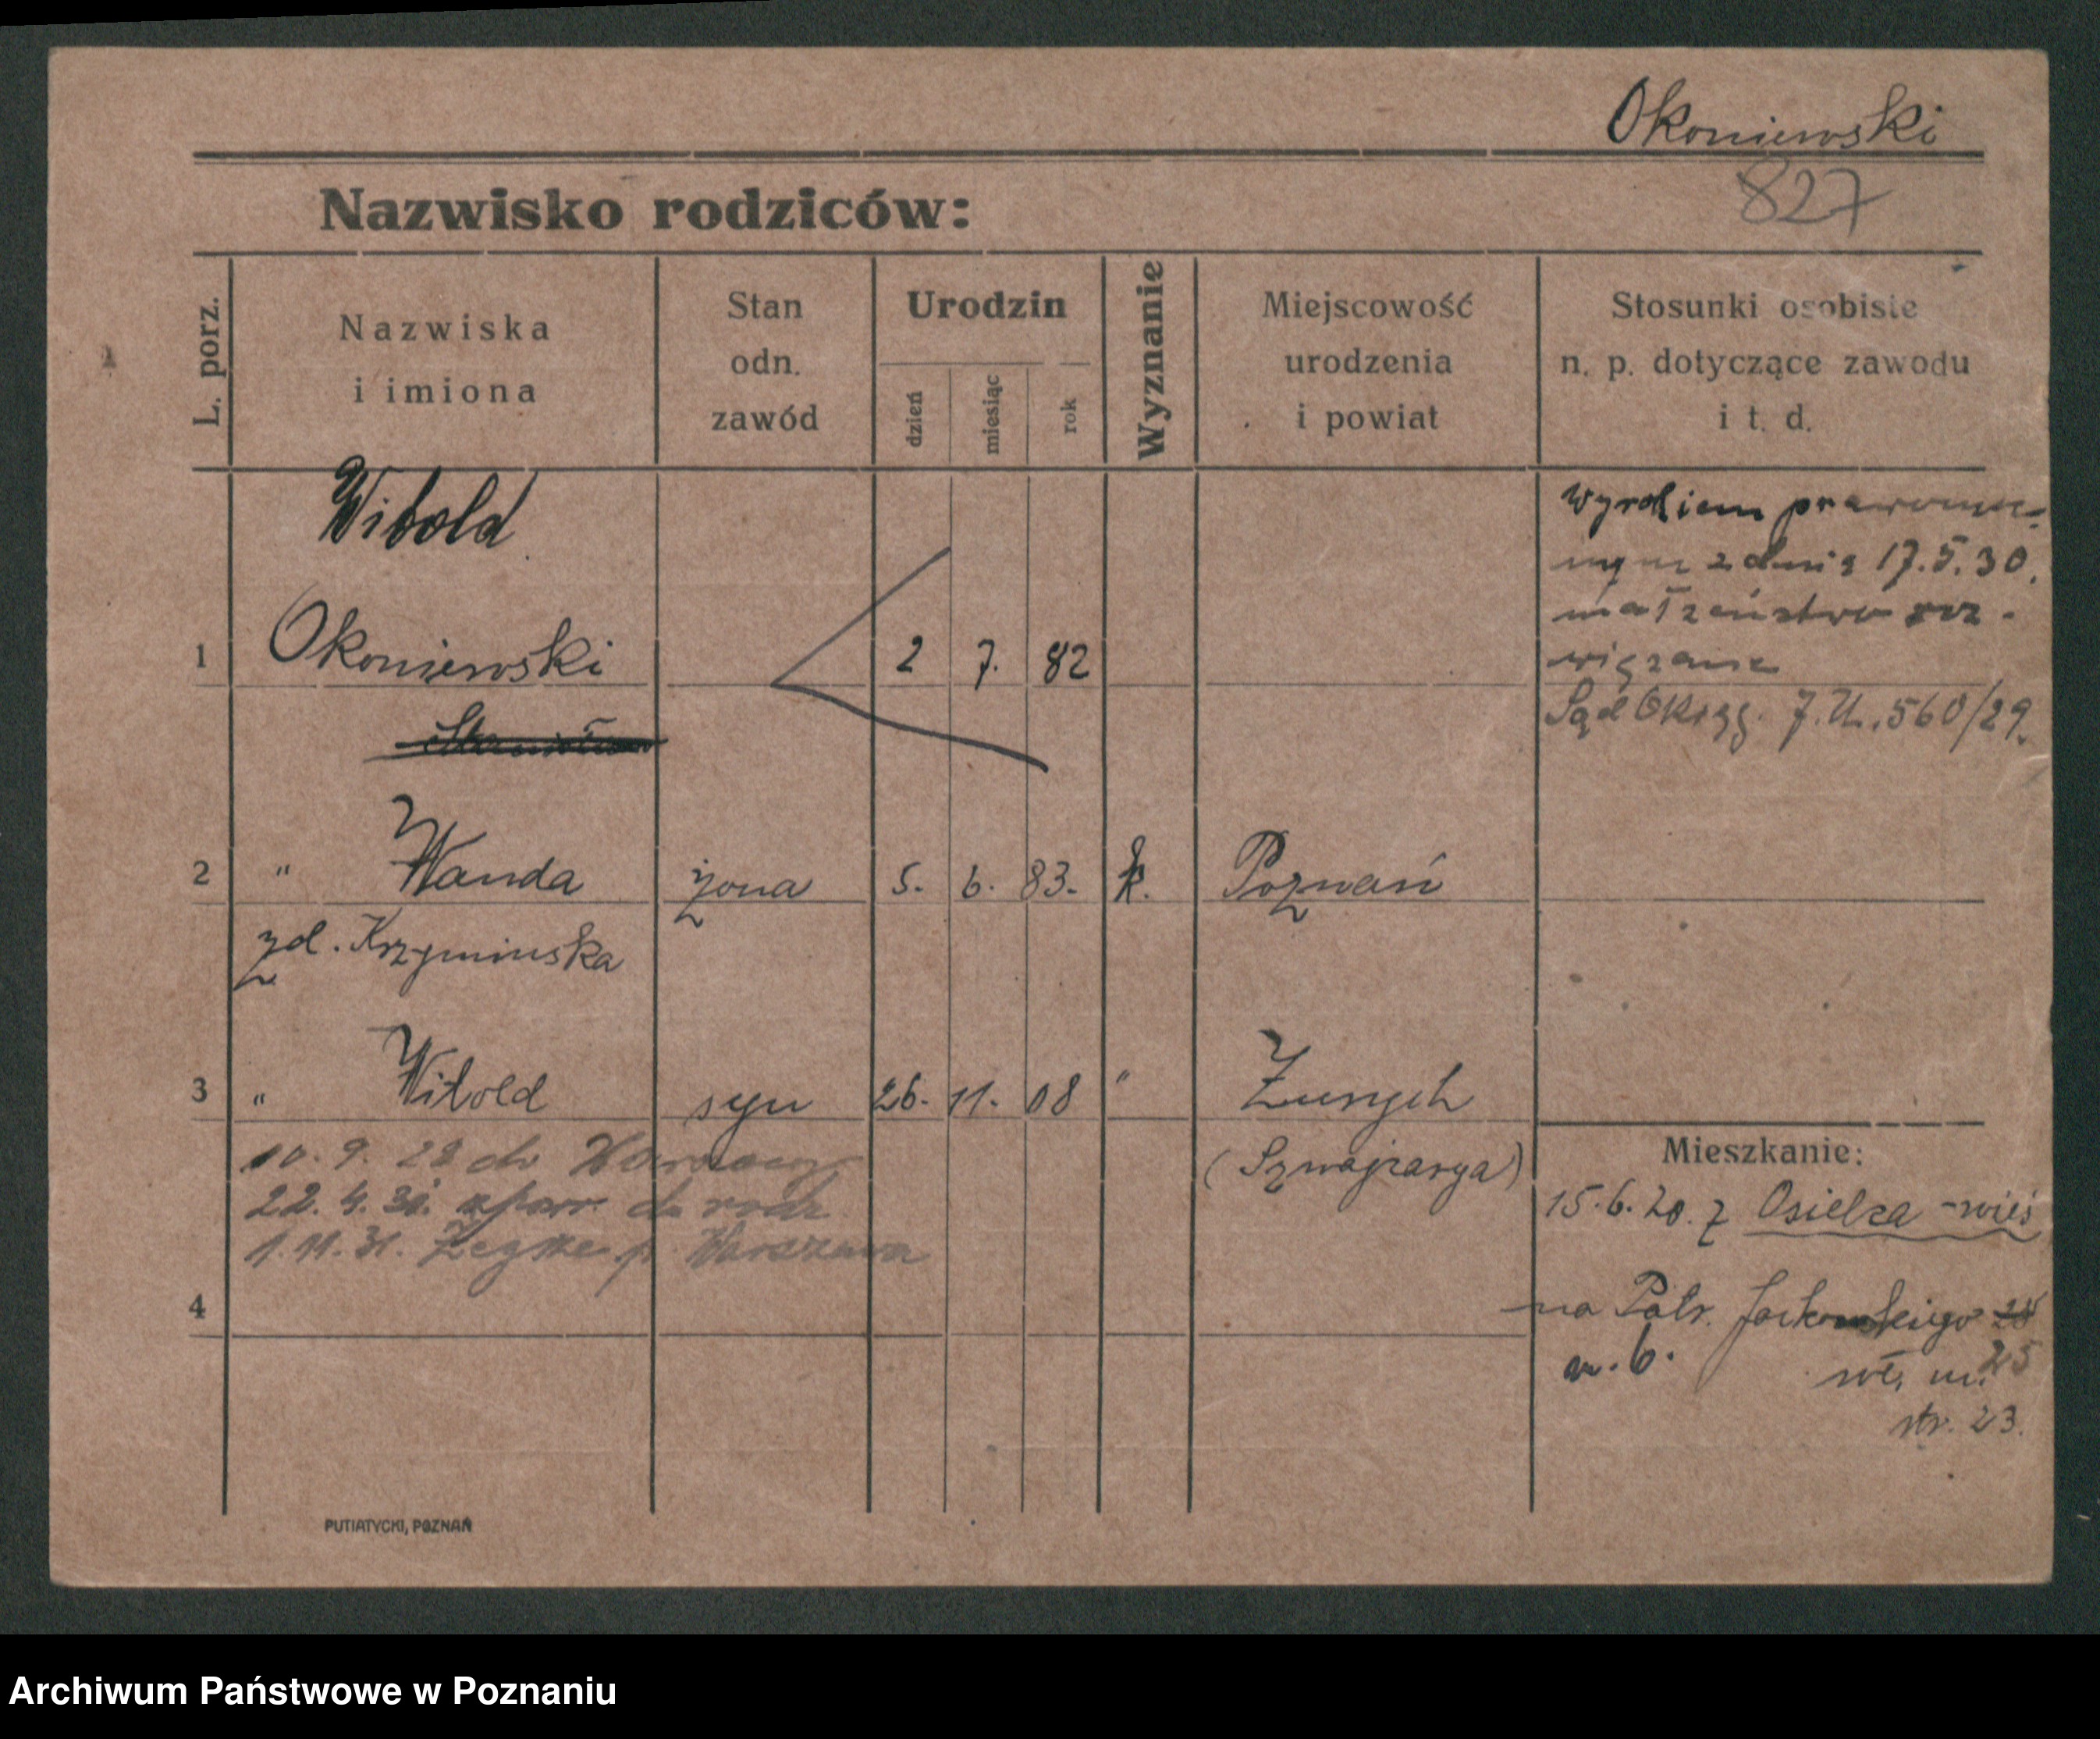 Okoniewski
827
Nazwisko rodziców:
L. porz.
Nazwiska
i imiona
Stan
odn.
zawód
Urodzin
dzień
miesiąc
rok
Wyznanie
Miejscowość
urodzenia
i powiat
Stosunki osobiste
n. p. dotyczące zawodu
i t. d.
Witold
1 Okoniewski 2 7. 82
Wyrokiem prawomoc-
nym z dnia 17.5.30.
małżeństwo roz-
wiązane
Sąd Okręg. 7.U.560/29.
2 " Wanda żona 5. 6. 83. k. Poznań
zd. Krzymińska
3 " Witold syn 26. 11. 08 " Zurych
(Szwajcarya)
10. 9. 28 do Warszawy
22. 4. 31. do rodz.
1. 11. 31. Zegrze p. Warszawa
4
Mieszkanie:
15.6.20. z Osielca - wieś
na Patr. Jackowskiego
25
m. 6.
wł. m.
str. 23.
PUTIATYCKI, POZNAŃ
Archiwum Państwowe w Poznaniu